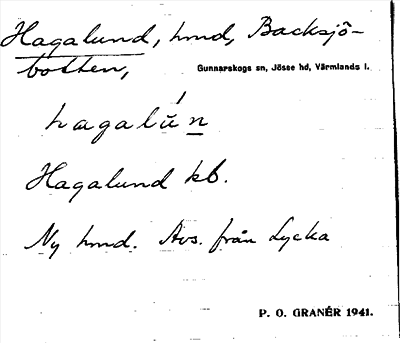 Hagalund, hmd, Backsjö-
botten,
Gunnarskogs sn, Jösse hd, Värmlands l.
hagalún
Hagalund kb.
Ny hmd. Avs. från Lycka
P. O. GRANÉR 1941.